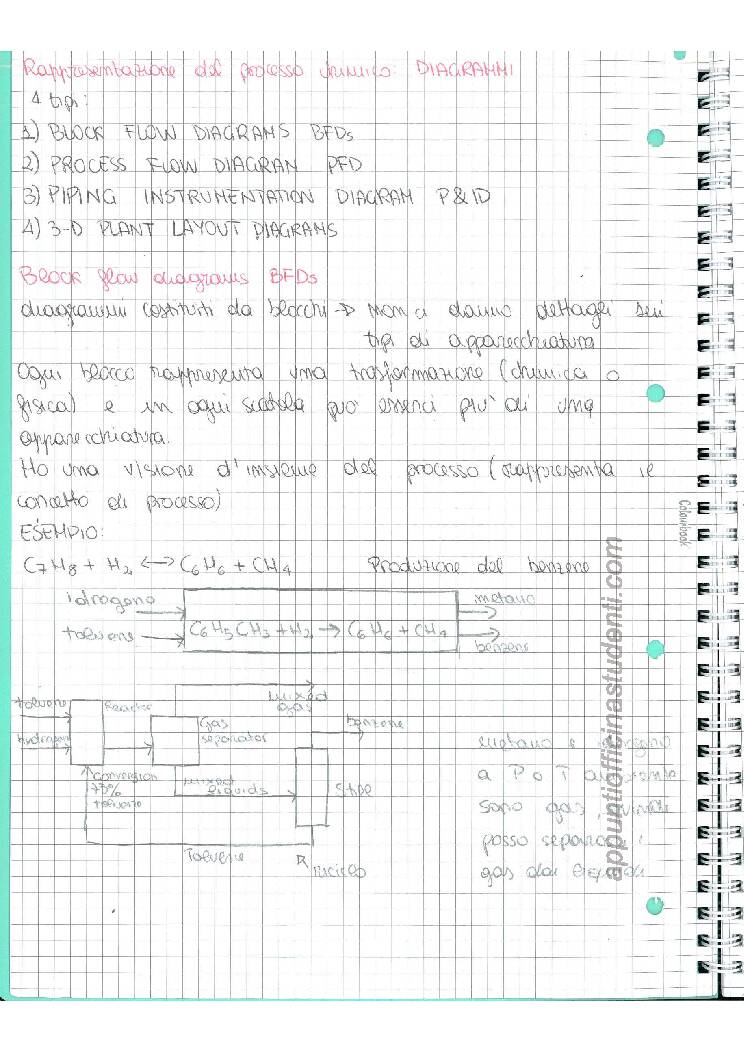 Rappresentazione del processo chimico: DIAGRAMMI
4 tipi:
1) BLOCK FLOW DIAGRAMS BFDs
2) PROCESS FLOW DIAGRAM PFD
3) PIPING INSTRUMENTATION DIAGRAM P&ID
4) 3-D PLANT LAYOUT DIAGRAMS
Block flow diagrams BFDs
diagrammi costituiti da blocchi → non ci danno dettagli sui
tipi di apparecchiatura
Ogni blocco rappresenta una trasformazione (chimica o
fisica) e in ogni scatola può esserci più di una
apparecchiatura.
Ho una visione d'insieme del processo (rappresenta il
concetto di processo)
ESEMPIO:
C7H8 + H2 ←→ C6H6 + CH4 Produzione del benzene
idrogeno metano
toluene C6H5CH3 + H2 → C6H6 + CH4 benzene
mixed
gas
toluene Reactor benzene
hydrogen Gas
separator
conversion
75%
toluene
mixed
liquids
Still
Toluene
riciclo
metano e idrogeno
a P e T ambiente
sono gas, quindi
posso separare i
gas dai liquidi
Colourbook
appuntiofficinastudenti.com